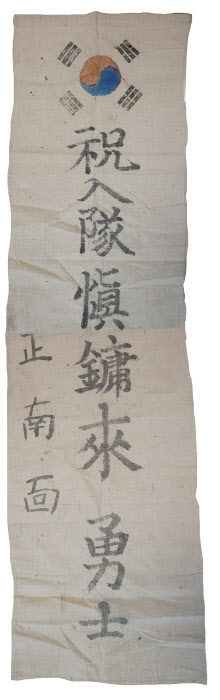 祝入隊愼鏞來 勇士
正南面